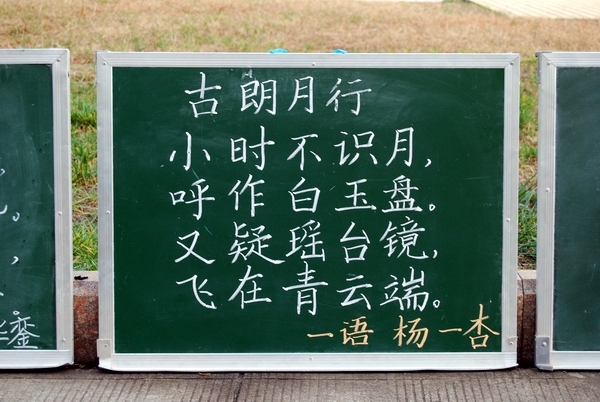 古朗月行
小时不识月,
呼作白玉盘。
又疑瑶台镜,
飞在青云端。
一语 杨一杏